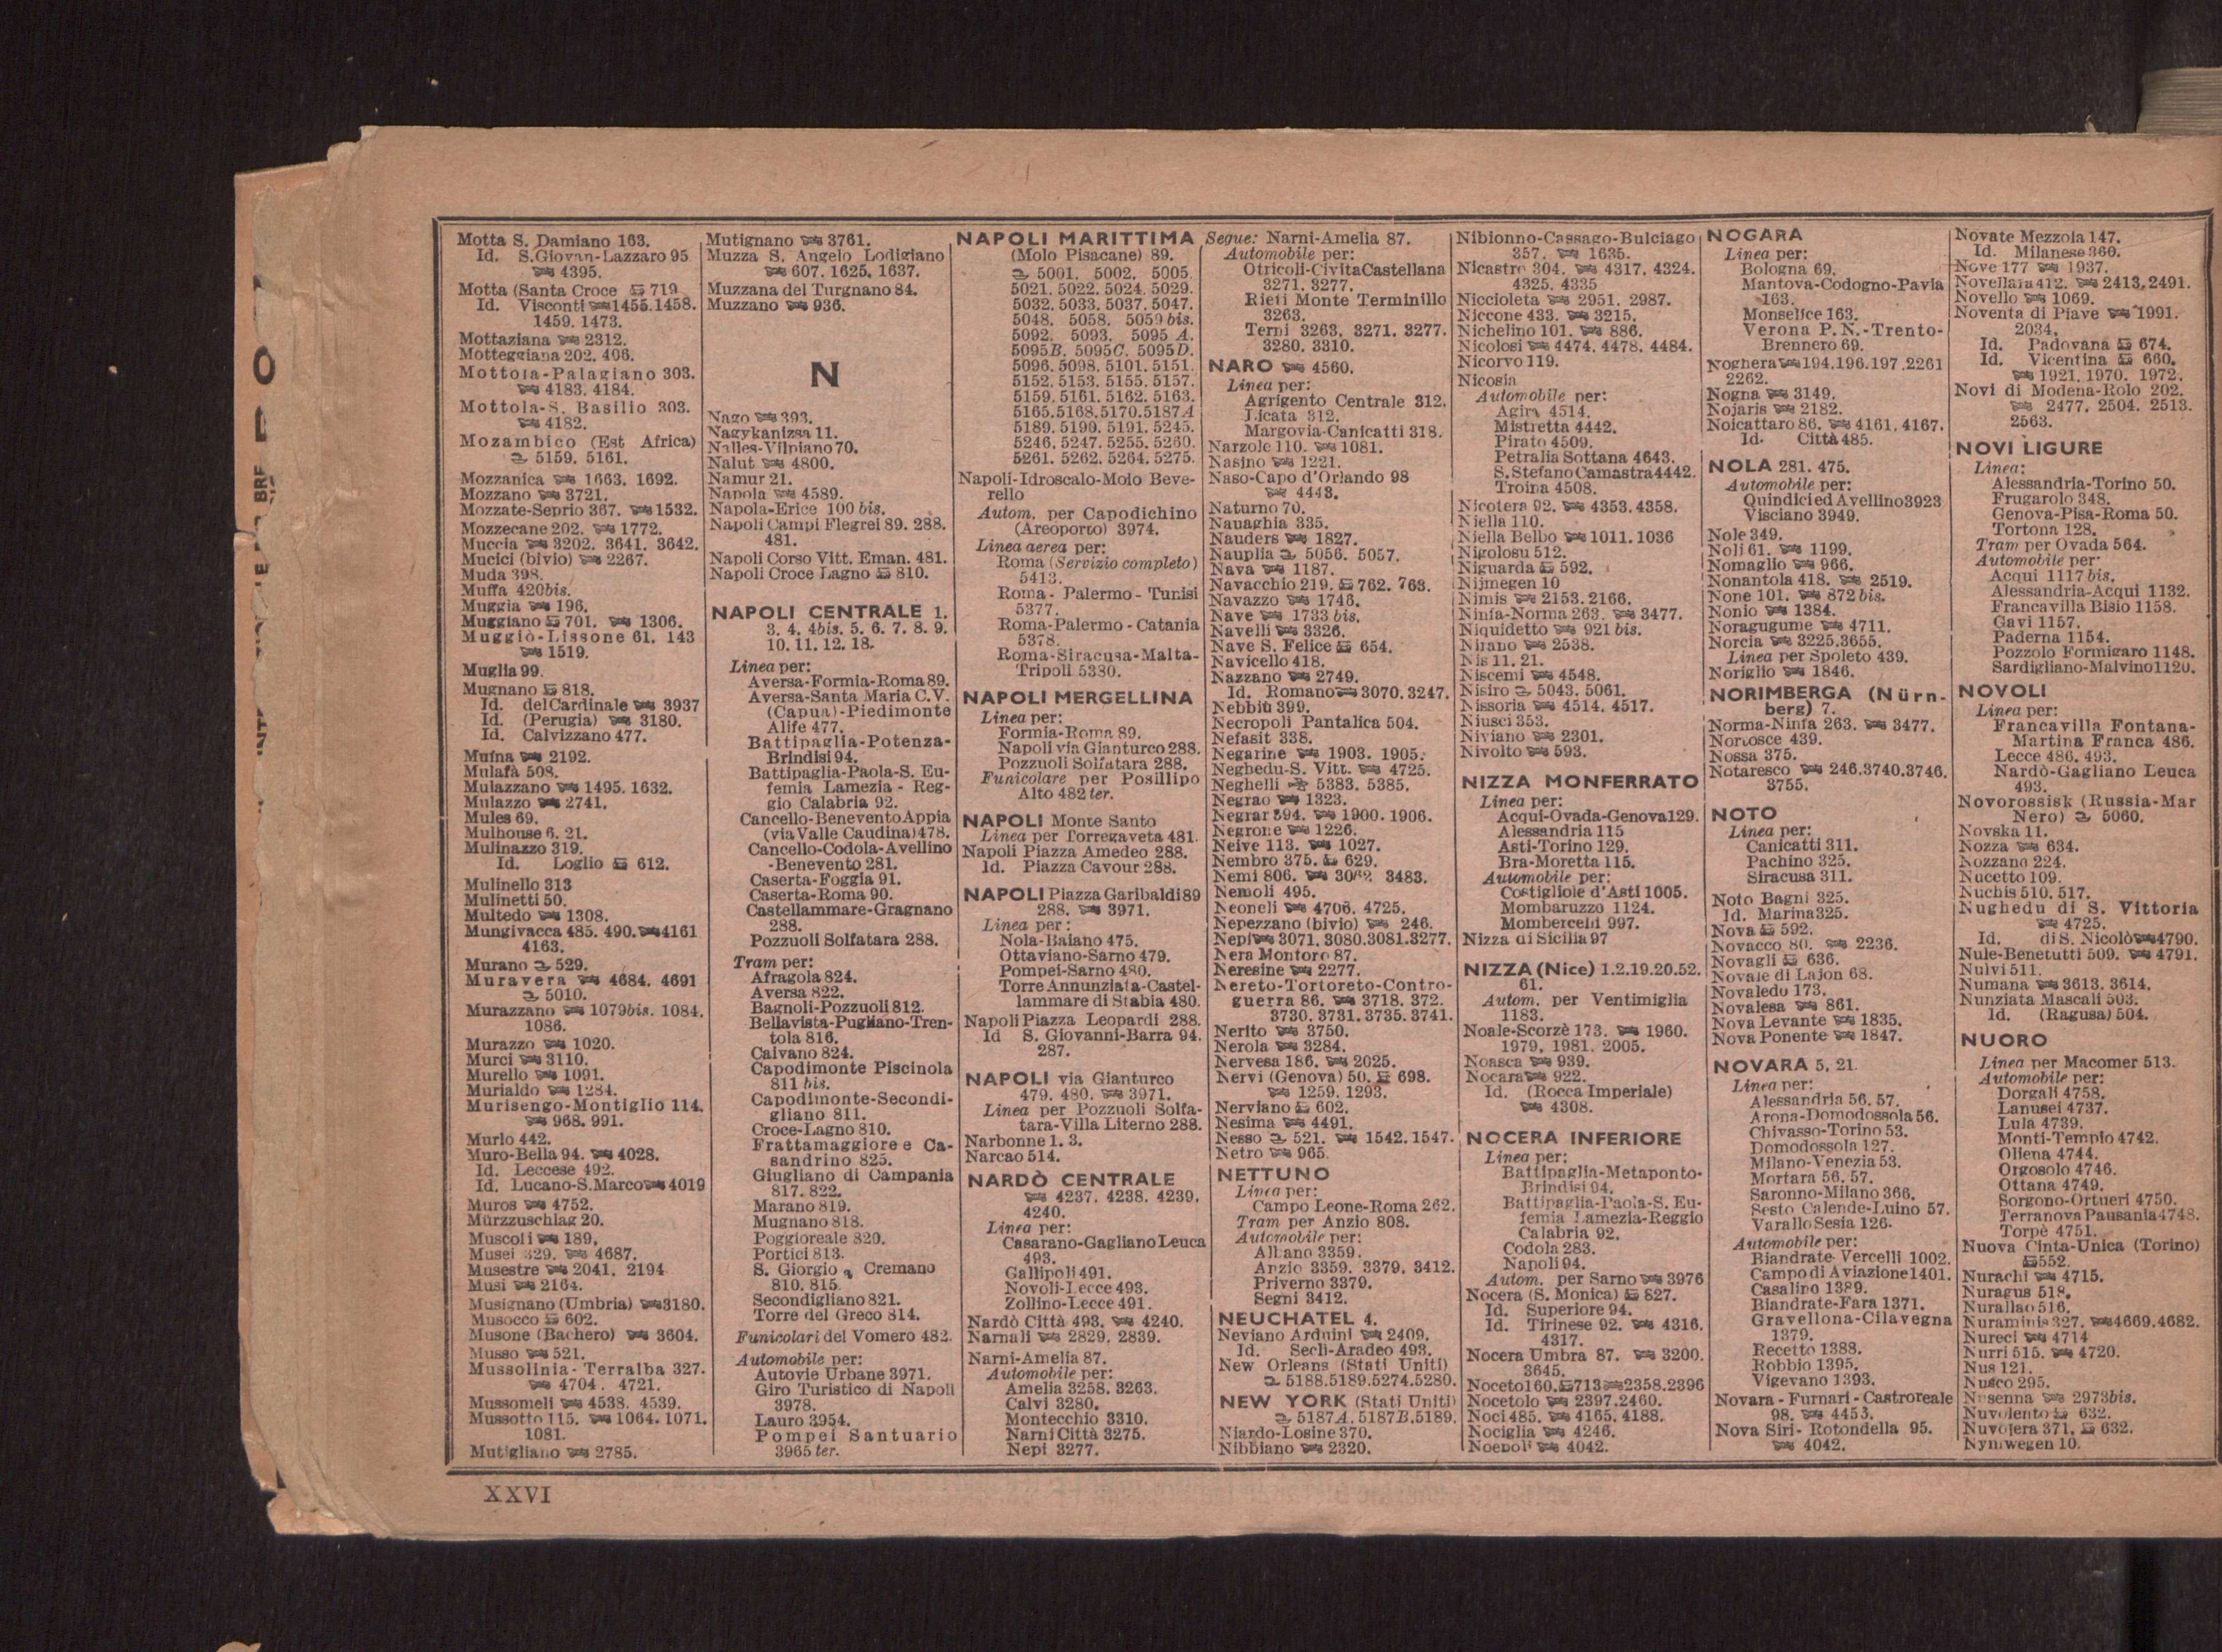 Motta S. Damiano 163.
Id. S.Giovan-Lazzaro 95
4395.
Motta (Santa Croce 719
Id. Visconti 1455.1458.
1459. 1473.
Mottaziana 2312.
Motteggiana 202. 406.
Mottola-Palagiano 303.
4183. 4184.
Mottola-S. Basilio 303.
4182.
Mozambico (Est Africa)
5159. 5161.
Mozzanica 1663. 1692.
Mozzano 3721.
Mozzate-Seprio 367. 1532.
Mozzecane 202. 1772.
Muccia 3202. 3641. 3642.
Mucici (bivio) 2267.
Muda 398.
Muffa 420bis.
Muggia 196.
Muggiano 701. 1306.
Muggiò-Lissone 61. 143
1519.
Muglia 99.
Mugnano 818.
Id. del Cardinale 3937
Id. (Perugia) 3180.
Id. Calvizzano 477.
Mufna 2192.
Mulafà 508.
Mulazzano 1495. 1632.
Mulazzo 2741.
Mules 69.
Mulhouse 6. 21.
Mulinazzo 319.
Id. Loglio 612.
Mulinello 313
Mulinetti 50.
Multedo 1308.
Mungivacca 485. 490. 4161
4163.
Murano 529.
Muravera 4684. 4691
5010.
Murazzano 1079bis. 1084.
1086.
Murazzo 1020.
Murci 3110.
Murello 1091.
Murialdo 1284.
Murisengo-Montiglio 114.
968. 991.
Murlo 442.
Muro-Bella 94. 4028.
Id. Leccese 492.
Id. Lucano-S.Marco 4019
Muros 4752.
Mürzzuschlag 20.
Muscoli 189.
Musei 329. 4687.
Musestre 2041. 2194
Musi 2164.
Musignano (Umbria) 3180.
Musocco 602.
Musone (Bachero) 3604.
Musso 521.
Mussolinia-Terralba 327.
4704. 4721.
Mussomeli 4538. 4539.
Mussotto 115. 1064. 1071.
1081.
Mutigliano 2785.
Mutignano 3761.
Muzza S. Angelo Lodigiano
607. 1625. 1637.
Muzzana del Turgnano 84.
Muzzano 936.
N
Nago 393.
Nagykanizsa 11.
Nalles-Vilpiano 70.
Nalut 4800.
Namur 21.
Napola 4589.
Napola-Erice 100 bis.
Napoli Campi Flegrei 89. 288.
481.
Napoli Corso Vitt. Eman. 481.
Napoli Croce Lagno 810.
NAPOLI CENTRALE 1.
3. 4. 4bis. 5. 6. 7. 8. 9.
10. 11. 12. 18.
Linea per:
Aversa-Formia-Roma 89.
Aversa-Santa Maria C.V.
(Capua)-Piedimonte
Alife 477.
Battipaglia-Potenza-
Brindisi 94.
Battipaglia-Paola-S. Eu-
femia Lamezia - Reg-
gio Calabria 92.
Cancello-Benevento Appia
(via Valle Caudina) 478.
Cancello-Codola-Avellino
-Benevento 281.
Caserta-Foggia 91.
Caserta-Roma 90.
Castellammare-Gragnano
288.
Pozzuoli Solfatara 288.
Tram per:
Afragola 824.
Aversa 822.
Bagnoli-Pozzuoli 812.
Bellavista-Pugliano-Tren-
tola 816.
Caivano 824.
Capodimonte Piscinola
811 bis.
Capodimonte-Secondi-
gliano 811.
Croce-Lagno 810.
Frattamaggiore e Ca-
sandrino 825.
Giugliano di Campania
817. 822.
Marano 819.
Mugnano 818.
Poggioreale 820.
Portici 813.
S. Giorgio a Cremano
810. 815.
Secondigliano 821.
Torre del Greco 814.
Funicolari del Vomero 482.
Automobile per:
Autovie Urbane 3971.
Giro Turistico di Napoli
3978.
Lauro 3954.
Pompei Santuario
3965 ter.
NAPOLI MARITTIMA
(Molo Pisacane) 89.
5001. 5002. 5005.
5021. 5022. 5024. 5029.
5032. 5033. 5037. 5047.
5048. 5058. 5059 bis.
5092. 5093. 5095 A.
5095B. 5095C. 5095D.
5096. 5098. 5101. 5151.
5152. 5153. 5155. 5157.
5159. 5161. 5162. 5163.
5165.5168.5170.5187A
5189. 5190. 5191. 5245.
5246. 5247. 5255. 5260.
5261. 5262. 5264. 5275.
Napoli-Idroscalo-Molo Beve-
rello
Autom. per Capodichino
(Areoporto) 3974.
Linea aerea per:
Roma (Servizio completo)
5413.
Roma - Palermo - Tunisi
5377.
Roma-Palermo - Catania
5378.
Roma-Siracusa-Malta-
Tripoli 5380.
NAPOLI MERGELLINA
Linea per:
Formia-Roma 89.
Napoli via Gianturco 288.
Pozzuoli Solfatara 288.
Funicolare per Posillipo
Alto 482 ter.
NAPOLI Monte Santo
Linea per Torregaveta 481.
Napoli Piazza Amedeo 288.
Id. Piazza Cavour 288.
NAPOLI Piazza Garibaldi 89
288. 3971.
Linea per:
Nola-Baiano 475.
Ottaviano-Sarno 479.
Pompei-Sarno 480.
Torre Annunziata-Castel-
lammare di Stabia 480.
Napoli Piazza Leopardi 288.
Id S. Giovanni-Barra 94.
287.
NAPOLI via Gianturco
479. 480. 3971.
Linea per Pozzuoli Solfa-
tara-Villa Literno 288.
Narbonne 1. 3.
Narcao 514.
NARDÒ CENTRALE
4237. 4238. 4239.
4240.
Linea per:
Casarano-Gagliano Leuca
493.
Gallipoli 491.
Novoli-Lecce 493.
Zollino-Lecce 491.
Nardò Città 493. 4240.
Narnali 2829. 2839.
Narni-Amelia 87.
Automobile per:
Amelia 3258. 3263.
Calvi 3280.
Montecchio 3310.
Narni Città 3275.
Nepi 3277.
Segue: Narni-Amelia 87.
Automobile per:
Otricoli-Civita Castellana
3271. 3277.
Rieti Monte Terminillo
3263.
Terni 3263. 3271. 3277.
3280. 3310.
NARO 4560.
Linea per:
Agrigento Centrale 312.
Licata 312.
Margovia-Canicatti 318.
Narzole 110. 1081.
Nasino 1221.
Naso-Capo d'Orlando 98
4443.
Naturno 70.
Nauaghia 335.
Nauders 1827.
Nauplia 5056. 5057.
Nava 1187.
Navacchio 219. 762. 763.
Navazzo 1746.
Nave 1733 bis.
Navelli 3326.
Nave S. Felice 654.
Navicello 418.
Nazzano 2749.
Id. Romano 3070. 3247.
Nebbiù 399.
Necropoli Pantalica 504.
Nefasit 338.
Negarine 1903. 1905.
Neghedu-S. Vitt. 4725.
Neghelli 5383. 5385.
Negrao 1323.
Negrar 394. 1900. 1906.
Negrone 1226.
Neive 113. 1027.
Nembro 375. 629.
Nemi 806. 3483.
Nemoli 495.
Neoneli 4706. 4725.
Nepezzano (bivio) 246.
Nepi 3071. 3080.3081.3277.
Nera Montoro 87.
Neresine 2277.
Nereto-Tortoreto-Contro-
guerra 86. 3718. 372.
3730. 3731. 3735. 3741.
Nerito 3750.
Nerola 3284.
Nervesa 186. 2025.
Nervi (Genova) 50. 698.
1259. 1293.
Nerviano 602.
Nesima 4491.
Nesso 521. 1542. 1547.
Netro 965.
NETTUNO
Linea per:
Campo Leone-Roma 262.
Tram per Anzio 808.
Automobile per:
Albano 3359.
Anzio 3359. 3379. 3412.
Priverno 3379.
Segni 3412.
NEUCHATEL 4.
Neviano Arduini 2409.
Id. Seclì-Aradeo 493.
New Orleans (Stati Uniti)
5188.5189.5274.5280.
NEW YORK (Stati Uniti)
5187A. 5187B.5189.
Niardo-Losine 370.
Nibbiano 2320.
Nibionno-Cassago-Bulciago
357. 1635.
Nicastro 304. 4317. 4324.
4325. 4335
Niccioleta 2951. 2987.
Niccone 433. 3215.
Nichelino 101. 886.
Nicolosi 4474. 4478. 4484.
Nicorvo 119.
Nicosia
Automobile per:
Agira 4514.
Mistretta 4442.
Pirato 4509.
Petralia Sottana 4643.
S. Stefano Camastra 4442.
Troina 4508.
Nicotera 92. 4353. 4358.
Niella 110.
Niella Belbo 1011. 1036
Nigolosu 512.
Niguarda 592.
Nijmegen 10
Nimis 2153. 2166.
Ninfa-Norma 263. 3477.
Niquidetto 921 bis.
Nirano 2538.
Nis 11. 21.
Niscemi 4548.
Nisiro 5043. 5061.
Nissoria 4514. 4517.
Niusci 353.
Niviano 2301.
Nivolto 593.
NIZZA MONFERRATO
Linea per:
Acqui-Ovada-Genova 129.
Alessandria 115
Asti-Torino 129.
Bra-Moretta 115.
Automobile per:
Costigliole d'Asti 1005.
Mombaruzzo 1124.
Momberceli 997.
Nizza di Sicilia 97
NIZZA (Nice) 1.2.19.20.52.
61.
Autom. per Ventimiglia
1183.
Noale-Scorzè 173. 1960.
1979. 1981. 2005.
Noasca 939.
Nocara 922.
Id. (Rocca Imperiale)
4308.
NOCERA INFERIORE
Linea per:
Battipaglia-Metaponto-
Brindisi 94.
Battipaglia-Paola-S. Eu-
femia Lamezia-Reggio
Calabria 92.
Codola 283.
Napoli 94.
Autom. per Sarno 3976
Nocera (S. Monica) 827.
Id. Superiore 94.
Id. Tirinese 92. 4316.
4317.
Nocera Umbra 87. 3200.
3645.
Noceto 160. 713 2358.2396
Nocetolo 2397.2460.
Noci 485. 4165. 4188.
Nociglia 4246.
Noepoli 4042.
NOGARA
Linea per:
Bologna 69.
Mantova-Codogno-Pavia
163.
Monselice 163.
Verona P. N.-Trento-
Brennero 69.
Noghera 194.196.197.2261
2262.
Nogna 3149.
Nojaris 2182.
Noicattaro 86. 4161. 4167.
Id. Città 485.
NOLA 281. 475.
Automobile per:
Quindici ed Avellino 3923
Visciano 3949.
Nole 349.
Noli 61. 1199.
Nomaglio 966.
Nonantola 418. 2519.
None 101. 872 bis.
Nonio 1384.
Noragugume 4711.
Norcia 3225.3655.
Linea per Spoleto 439.
Noriglio 1846.
NORIMBERGA (Nürn-
berg) 7.
Norma-Ninfa 263. 3477.
Nortosce 439.
Nossa 375.
Notaresco 246.3740.3746.
3755.
NOTO
Linea per:
Canicatti 311.
Pachino 325.
Siracusa 311.
Noto Bagni 325.
Id. Marina 325.
Nova 592.
Novacco 80. 2236.
Novagli 636.
Novale di Lajon 68.
Novaledo 173.
Novalesa 861.
Nova Levante 1835.
Nova Ponente 1847.
NOVARA 5. 21.
Linea per:
Alessandria 56. 57.
Arona-Domodossola 56.
Chivasso-Torino 53.
Domodossola 127.
Milano-Venezia 53.
Mortara 56. 57.
Saronno-Milano 366.
Sesto Calende-Luino 57.
Varallo Sesia 126.
Automobile per:
Biandrate-Vercelli 1002.
Campo di Aviazione 1401.
Casalino 1389.
Biandrate-Fara 1371.
Gravellona-Cilavegna
1379.
Recetto 1388.
Robbio 1395.
Vigevano 1393.
Novara - Furnari - Castroreale
98. 4453.
Nova Siri- Rotondella 95.
4042.
Novate Mezzola 147.
Id. Milanese 360.
Nove 177 1937.
Novellara 412. 2413.2491.
Novello 1069.
Noventa di Piave 1991.
2034.
Id. Padovana 674.
Id. Vicentina 660.
1921. 1970. 1972.
Novi di Modena-Rolo 202.
2477. 2504. 2513.
2563.
NOVI LIGURE
Linea:
Alessandria-Torino 50.
Frugarolo 348.
Genova-Pisa-Roma 50.
Tortona 128.
Tram per Ovada 564.
Automobile per
Acqui 1117 bis.
Alessandria-Acqui 1132.
Francavilla Bisio 1158.
Gavi 1157.
Paderna 1154.
Pozzolo Formigaro 1148.
Sardigliano-Malvino 1120.
NOVOLI
Linea per:
Francavilla Fontana-
Martina Franca 486.
Lecce 486. 493.
Nardò-Gagliano Leuca
493.
Novorossisk (Russia-Mar
Nero) 5060.
Novska 11.
Nozza 634.
Nozzano 224.
Nucetto 109.
Nuchis 510. 517.
Nughedu di S. Vittoria
4725.
Id. di S. Nicolò 4790.
Nule-Benetutti 509. 4791.
Nulvi 511.
Numana 3613. 3614.
Nunziata Mascali 503.
Id. (Ragusa) 504.
NUORO
Linea per Macomer 513.
Automobile per:
Dorgali 4758.
Lanusei 4737.
Lula 4739.
Monti-Tempio 4742.
Oliena 4744.
Orgosolo 4746.
Ottana 4749.
Sorgono-Ortueri 4750.
Terranova Pausania 4748.
Torpè 4751.
Nuova Cinta-Unica (Torino)
552.
Nurachi 4715.
Nuragus 518.
Nurallao 516.
Nuraminis 327. 4669.4682.
Nureci 4714
Nurri 515. 4720.
Nus 121.
Nusco 295.
Nusenna 2973bis.
Nuvolento 632.
Nuvolera 371. 632.
Nymwegen 10.
XXVI